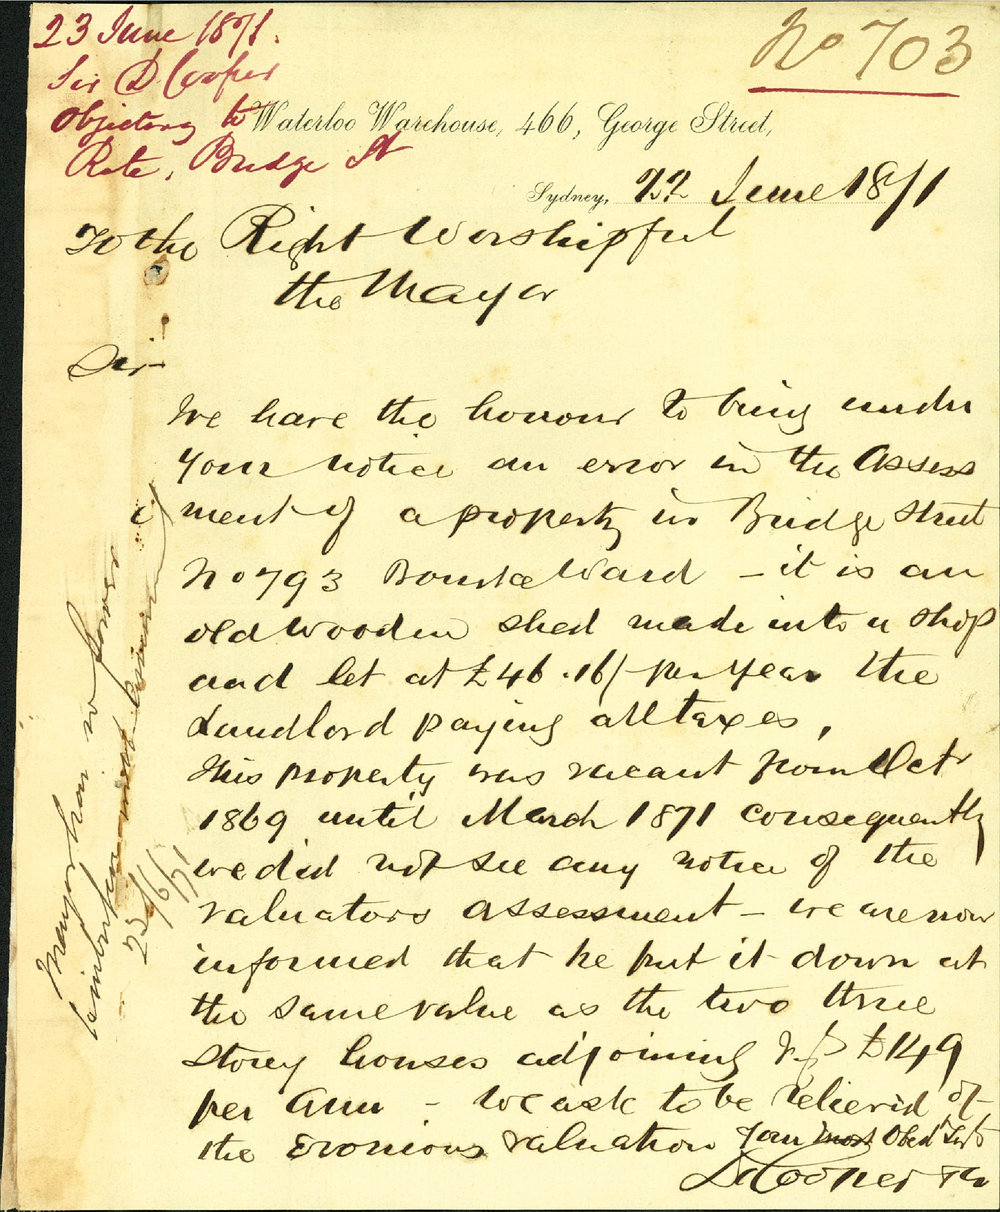 23 June 1871.
Sir D Cooper
Objecting to
Rate, Bridge St
No 703
Waterloo Warehouse, 466, George Street,
Sydney, 22 June 1871
To the Right Worshipful
the Mayor
Sir
We have the honour to bring under
your notice an error in the Assess
ment of a property in Bridge Street
No 793 Bourke Ward – it is an
old wooden shed made into a shop
and let at £46.16/ per year the
Landlord paying all taxes,
This property was vacant from Octr
1869 until March 1871 consequently
we did not see any notice of the
valuators assessment – we are now
informed that he put it down at
the same value as the two three
storey houses adjoining £149
per Ann – We ask to be relieved of
the eronious valuation Your most Obedt Servts
D Cooper
Mayor has no power
to interfere with assessment
23/6/71